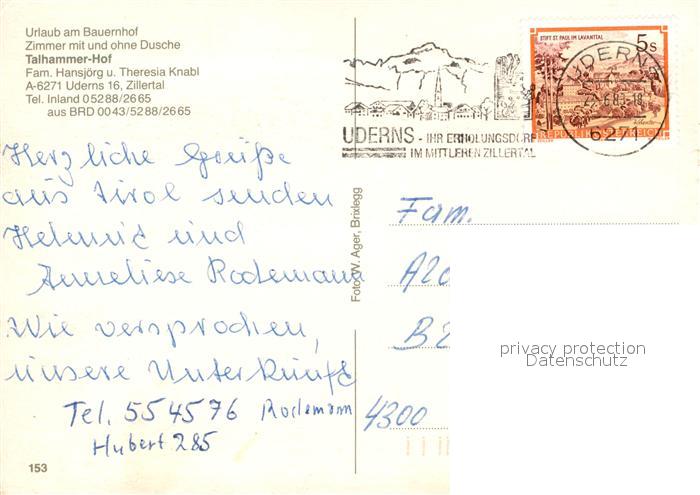 Urlaub am Bauernhof
Zimmer mit und ohne Dusche
Talhammer-Hof
Fam. Hansjörg u. Theresia Knabl
A-6271 Uderns 16, Zillertal
Tel. Inland 05288/2665
aus BRD 0043/5288/2665
STIFT ST. PAUL IM LAVANTTAL
5s
REPUBLIK ÖSTERREICH
UDERNS
6271
UDERNS - IHR ERHOLUNGSDORF
IM MITTLEREN ZILLERTAL
Herzliche Grüße
aus Tirol senden
Helmut und
Anneliese Rodemann
Wie versprochen,
unsere Unterkunft
Tel. 554576 Rodemann
Hubert 285
153
Foto: W. Ager, Brixlegg
Fam.
4300
privacy protection
Datenschutz